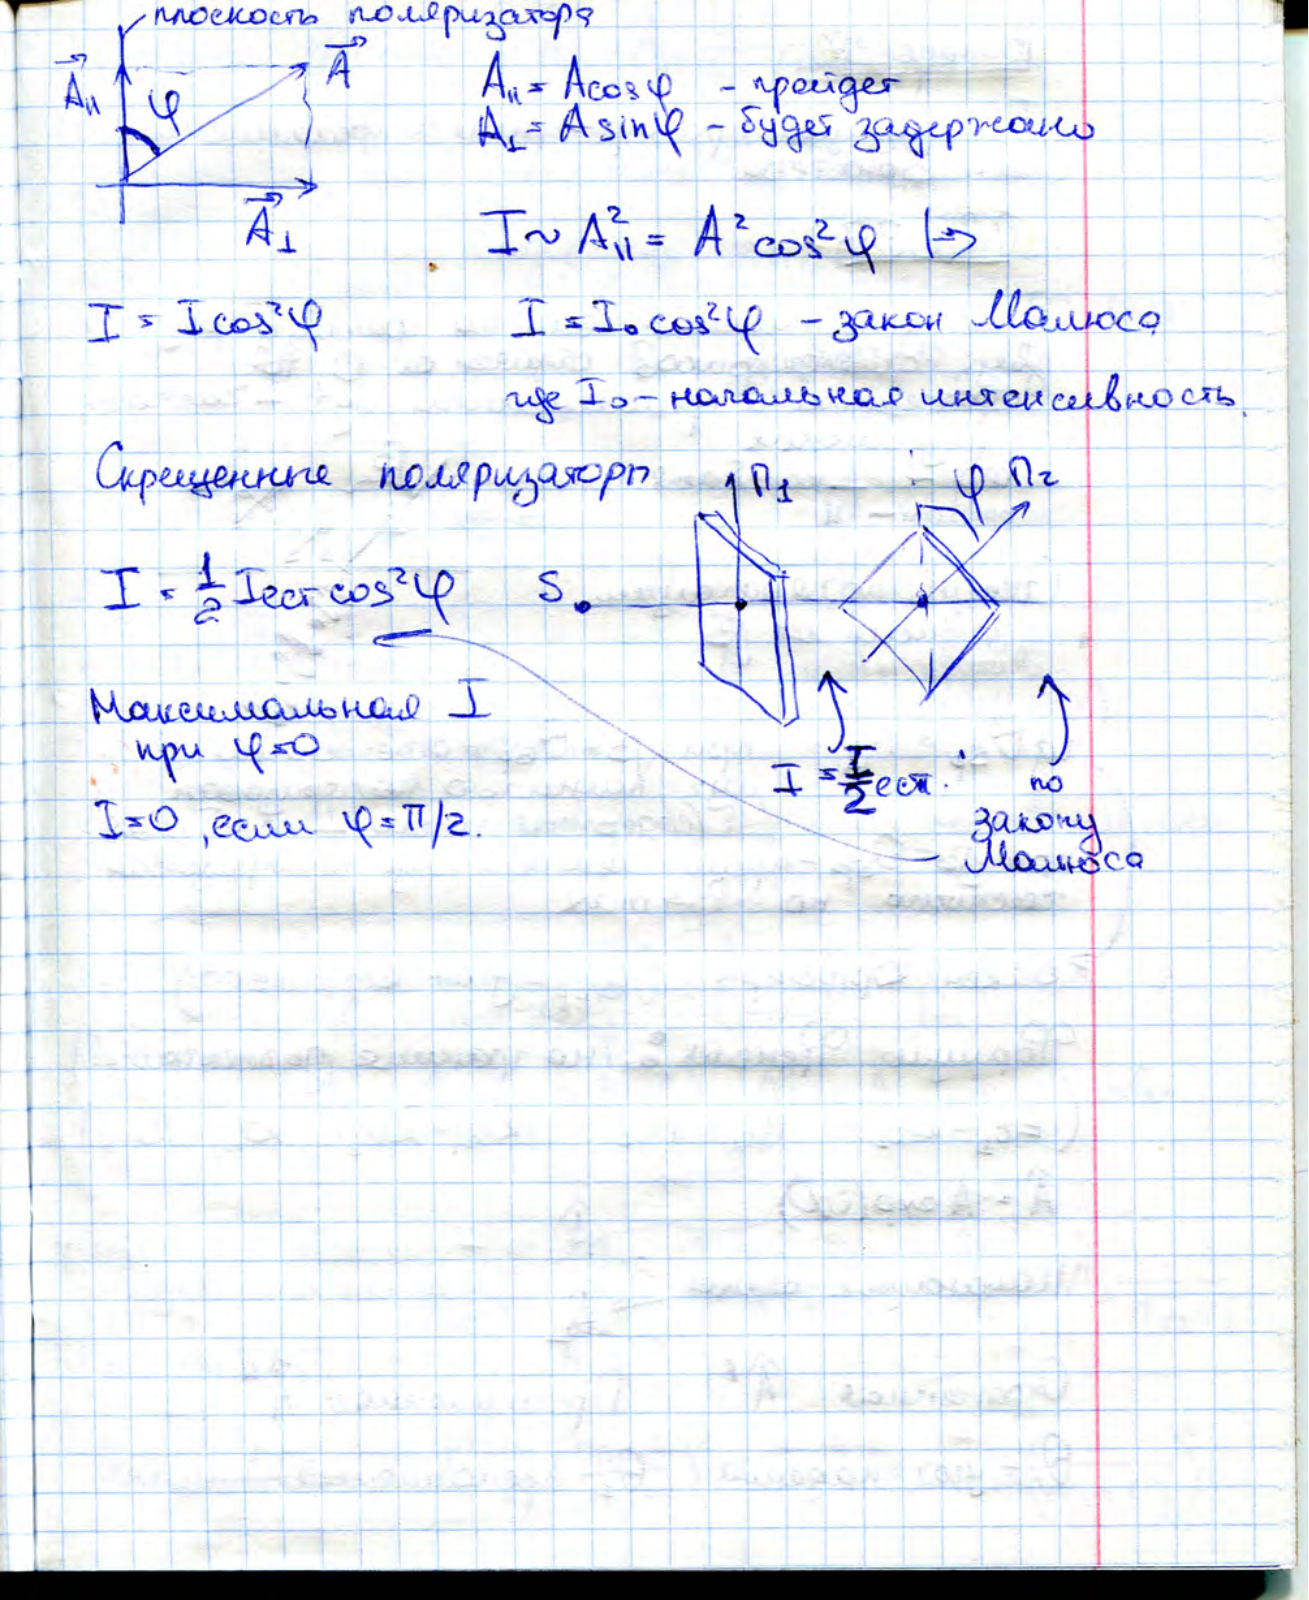 плоскость поляризатора
A⃗∥ φ A⃗
A⃗⊥
A∥ = A cosφ - пройдет
A⊥ = A sinφ - будет задержано
I ~ A∥² = A² cos²φ |⇒
I = I cos²φ I = I₀ cos²φ - закон Малюса
где I₀ - начальная интенсивность.
Скрещенные поляризаторы
П1 φ П2
I = 1/2 Iест cos²φ S
Максимальная I
при φ=0
I = I/2 ест.
I=0, если φ = π/2.
по
закону
Малюса